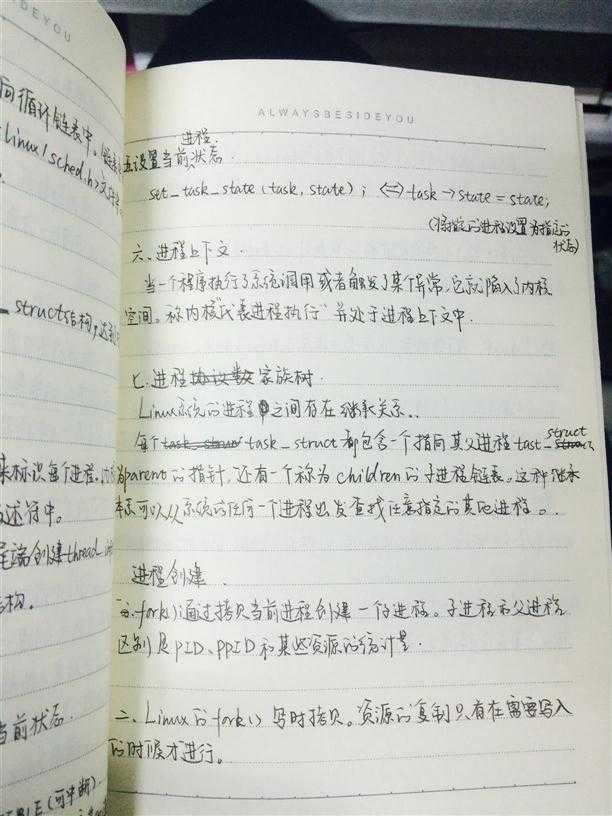 DEYOU
向循环链表中。链表
<linux/sched.h>文件
_struct结构,
来标识每个进程。
述符中。
尾端创建thread_
结构。
当前状态.
BLE(可中断)
ALWAYSBESIDEYOU
进程
五设置当前状态.
set_task_state(task, state); <=> task→state = state;
(将指定的进程设置为指定的
状态)
六、进程上下文.
当一个程序执行了系统调用或者触发了某个异常,它就陷入了内核
空间。称内核"代表进程执行"并处于进程上下文中.
七.进程协议数家族树.
Linux系统的进程之间存在继承关系..
struct
每个task_strut task_struct都包含一个指向其父进程tast_struct
为parent的指针,还有一个称为children的子进程链表。这种继承
体系可以从系统的任何一个进程出发查找任意指定的其他进程。.
进程创建.
一.fork()通过拷贝当前进程创建一个子进程。子进程和父进程
区别是PID、PPID和某些资源的统计量.
二、Linux的fork()写时拷贝。资源的复制只有在需要写入
的时候才进行。